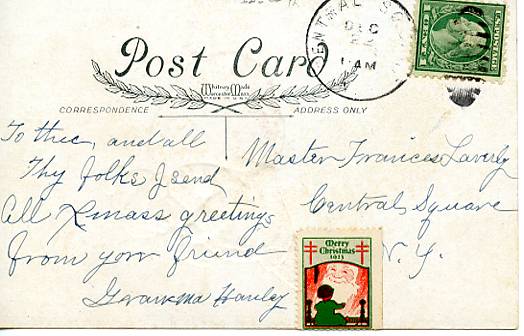 CENTRAL SQ
DEC
22
AM
U.S. POSTAGE
Post Card
Whitney Made
Worcester, Mass
MADE IN U.S.A.
CORRESPONDENCE
ADDRESS ONLY
To thee, and all
Thy folks I send
All Xmass greetings
from your friend
Hanley
Master Frances Laverly
Central Square
N. Y.
Merry
Christmas